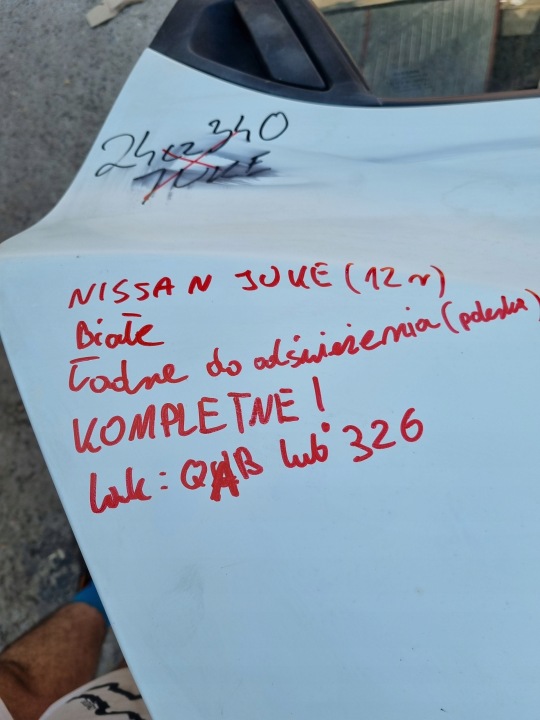 24cz340
JUKE
NISSAN JUKE (12r)
Białe
Ładne do odświeżenia (polerka)
KOMPLETNE!
Lak: QAB lub 326